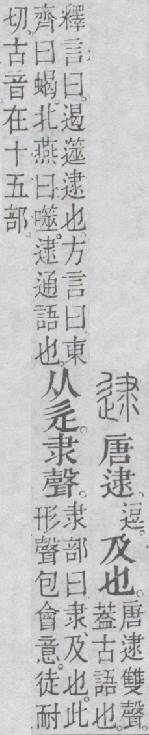 逮 唐逮、逗。及也。
唐逮雙聲。
葢古語也。
釋言曰。遏遾逮也。方言曰。東
齊曰蝎。北燕曰噬。逮通語也。
从辵。隶聲。
隶部曰。隶、及也。此
形聲包會意。徒耐
切。古音在十五部。